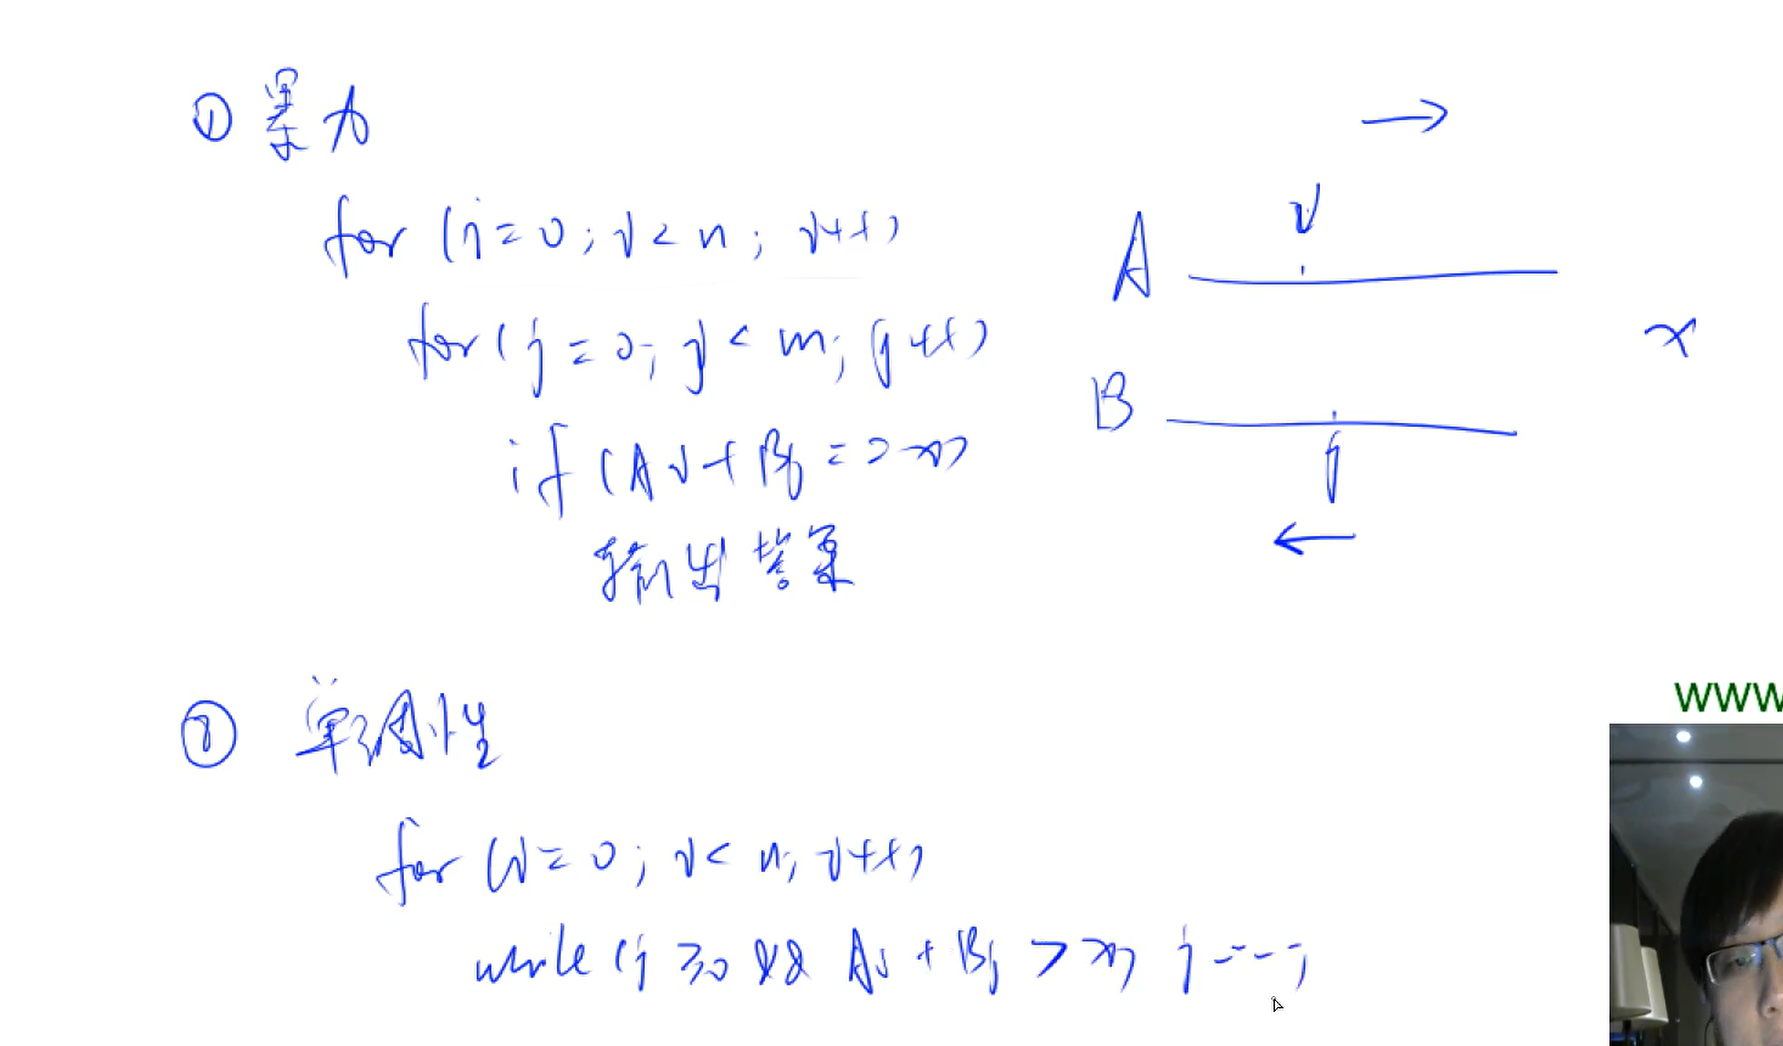 ① 暴力
for (i=0; i<n; i++)
for (j=0; j<m; j++)
if (Ai+Bj==x)
输出答案
→
i
A
x
B
j
←
② 单调性
for (i=0; i<n; i++)
while (j≥0 && Ai+Bj>x) j--;
www